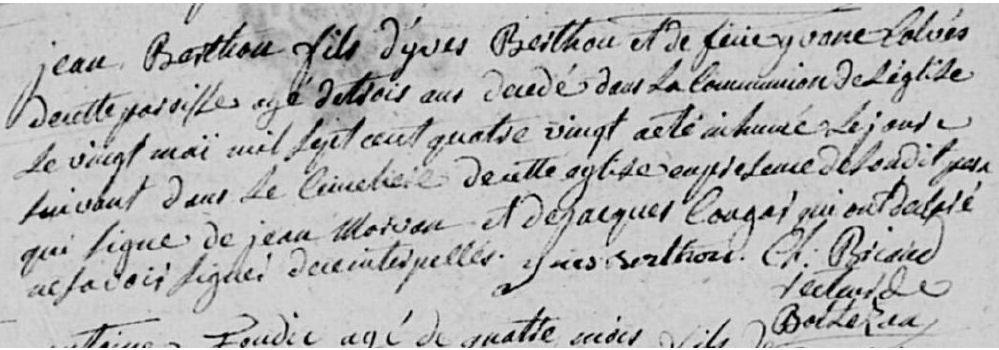 jean Berthou fils d'yves Berthou et de feüe yvone Calvés
de cette paroisse agé de trois ans decedé dans la Communion de L'église
Le vingt maï mil sept cent quatre vingt a eté inhumé Le jour
suivant dans Le Cimetiere de cette eglise en presence de Son dit pere
qui signe de jean Morvan et de jacques Congar qui ont declaré
ne savoir signer de ce interpellés. yves Berthou. Ch. Bricand
recteur de
Botlezan
antoine agé de quatre mois fils de